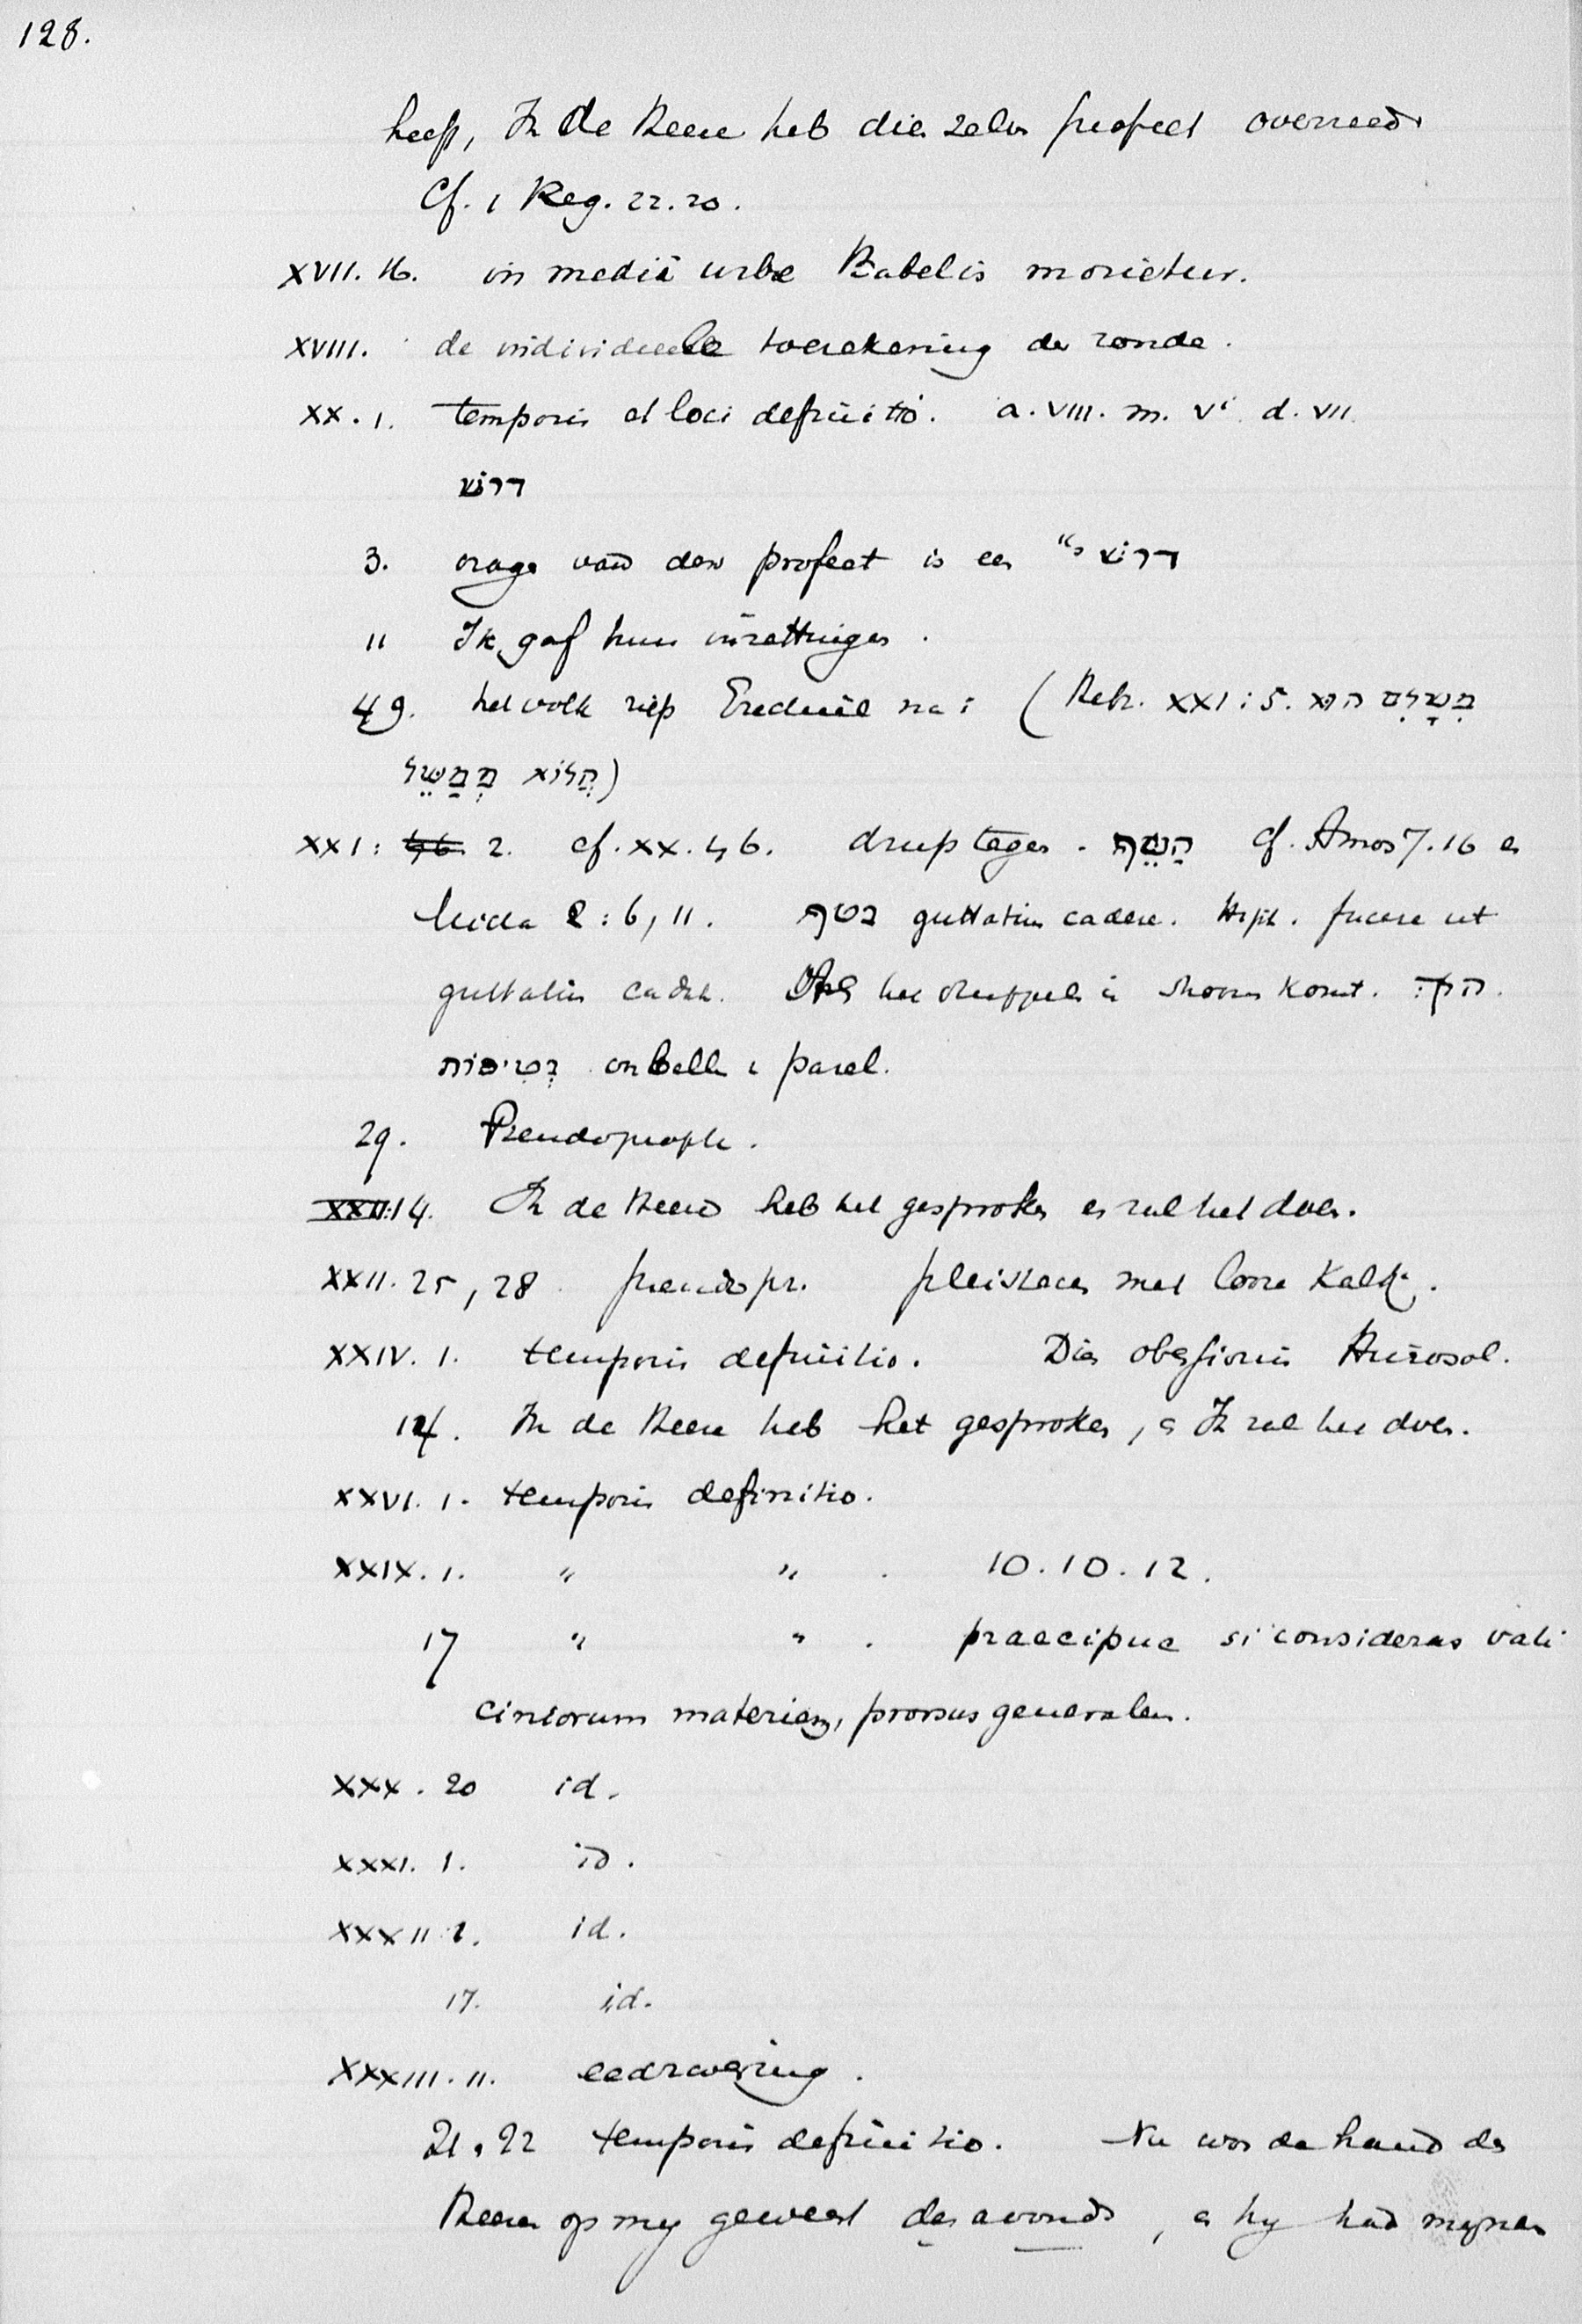 128.
heeft, Ik de Heere heb dien zelven profeet overreed.
Cf. 1 Reg. 22.20.
XVII. 16. in mediâ urbe Babelis morietur.
XVIII. de individueele toerekening der zonde.
XX. 1. temporis et loci definitio. a. VIII. m. V. d. VII.
דרוש
3. vrage van den profeet is een דרוש י״
11 Ik gaf hun inzettingen.
49. het volk riep Ezechiël na: (Hebr. XXI: 5.
הֲלוֹא מְמַשֵּׁל)
XXI: 2. cf. XX. 46. druptegen. הַטֵּף Cf. Amos 7.16 en
Micha 2: 6, 11. נטף guttatim cadere. Hiph. facere ut
guttatim cadat. het druppelen in stroom komt.
נְטִיפוֹת parel.
29. Pseudoproph.
14. Ik de Heere heb het gesproken en zal het doen.
XXII. 25, 28. pseudopr. pleisteren met looze kalk.
XXIV. 1. temporis definitio. Dies obsessionis Hierosol.
14. Ik de Heere heb het gesproken, en Ik zal het doen.
XXVI. 1. temporis definitio.
XXIX. 1. " " . 10. 10. 12.
17 " " . praecipue si consideras vati
ciniorum materiem, prorsus generalem.
XXX. 20 id.
XXXI. 1. id.
XXXII 1. id.
17. id.
XXXIII. 11. eedzwering.
21, 22 temporis definitio. Nu was de hand des
Heeren op mij geweest des avonds, en hij had mijnen